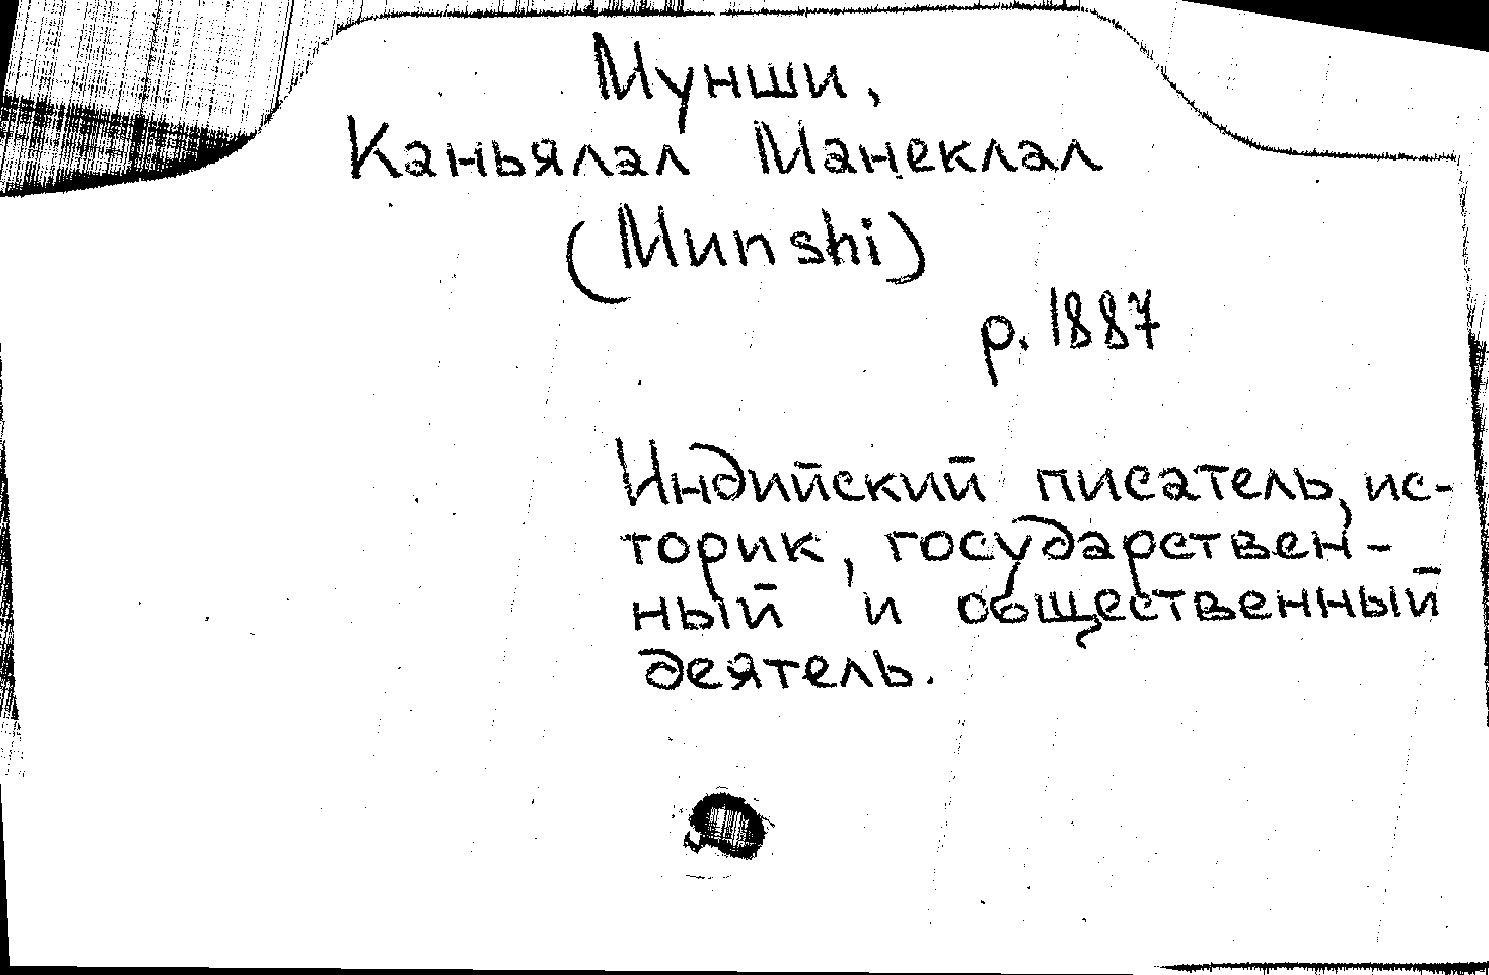 Мунши,
Каньялал Манеклал
(Munshi)
р. 1887
Индийский писатель, ис-
торик, государствен-
ный и общественный
деятель.